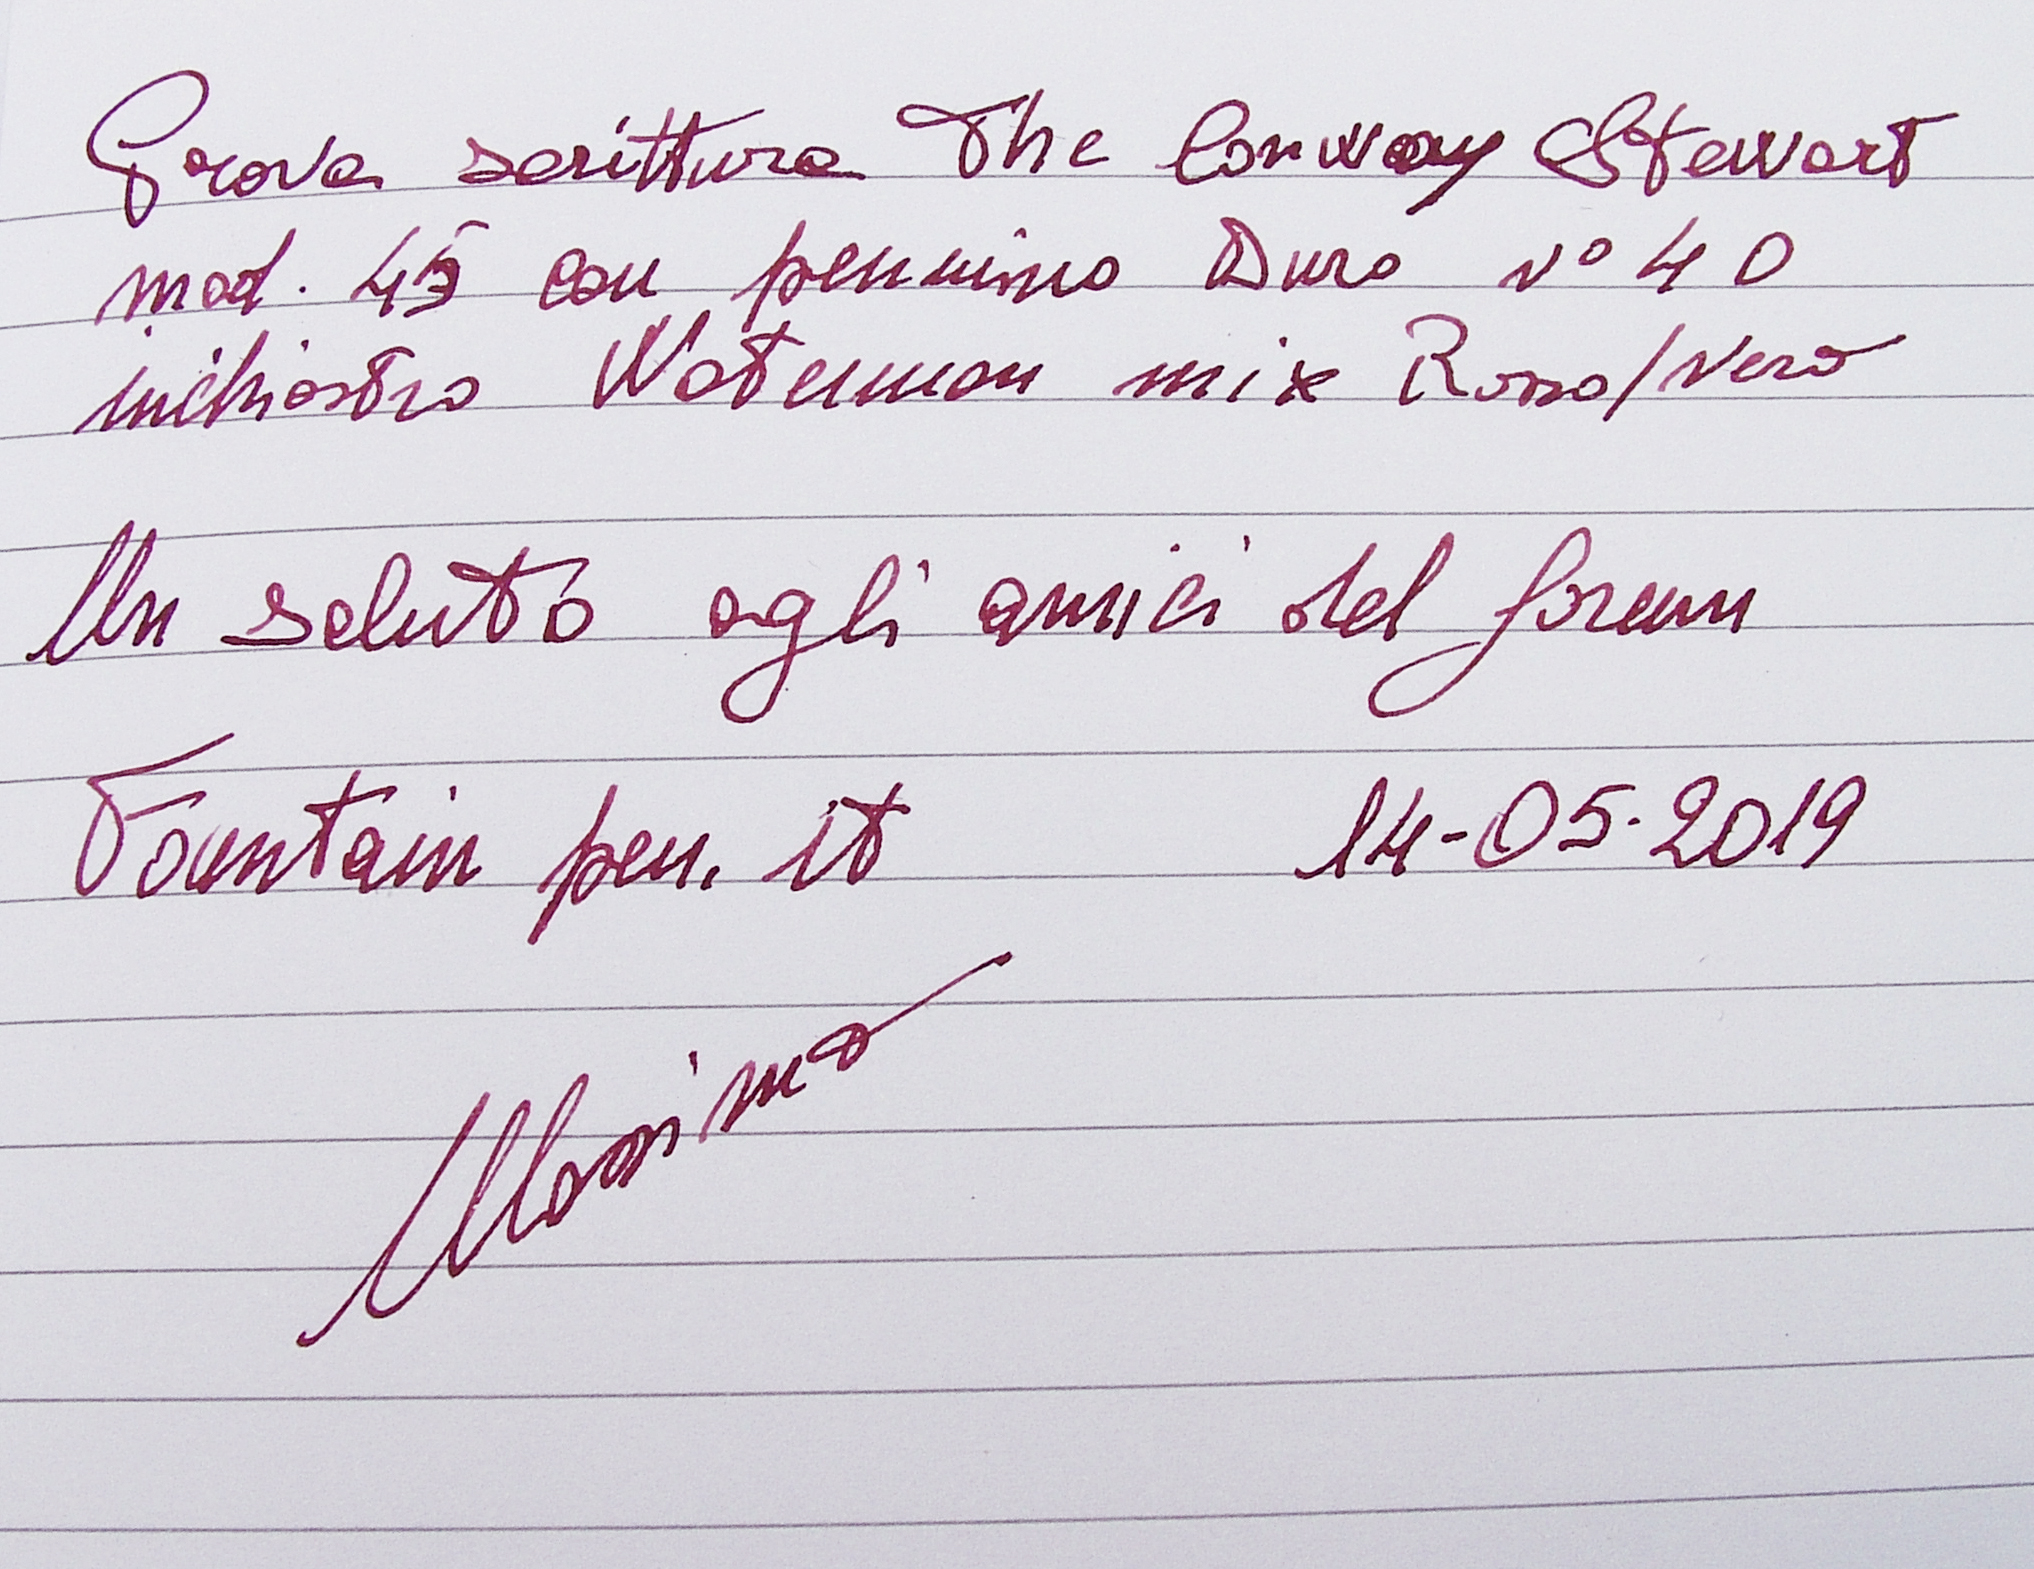 Prova scrittura The Conway Stewart
mod. 45 con pennino Duro n° 40
inchiostro Waterman mix Rosso/Nero
Un saluto agli amici del forum
Fountain pen. it 14-05-2019
Massimo